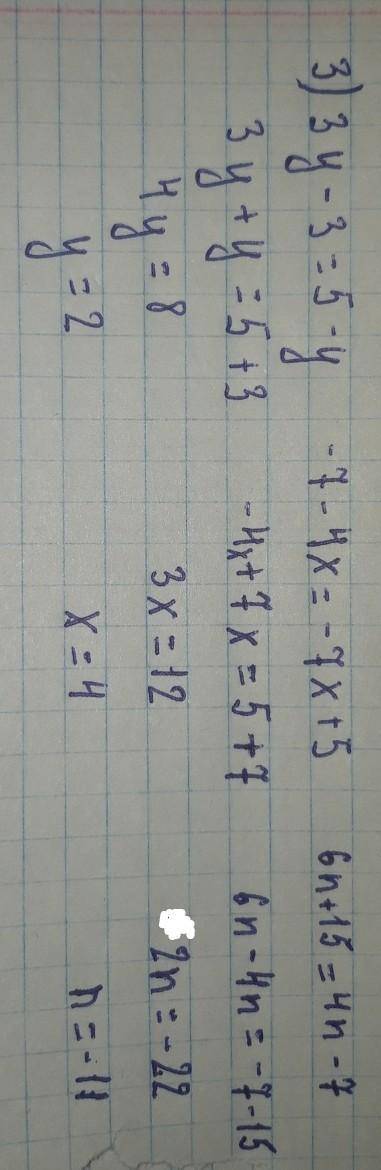 3) 3y - 3 = 5 - y
3y + y = 5 + 3
4y = 8
y = 2
-7 - 4x = -7x + 5
-4x + 7x = 5 + 7
3x = 12
x = 4
6n + 15 = 4n - 7
6n - 4n = -7 - 15
2n = -22
n = -11